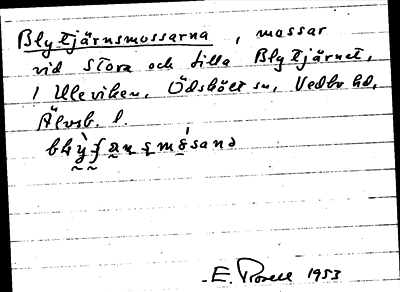 Blytjärnsmossarna, mossar
vid Stora och Lilla Blytjärnet,
i Uleviken, Ödskölt sn, Vedbo hd,
Älvsb. l.
E. Rosell 1953